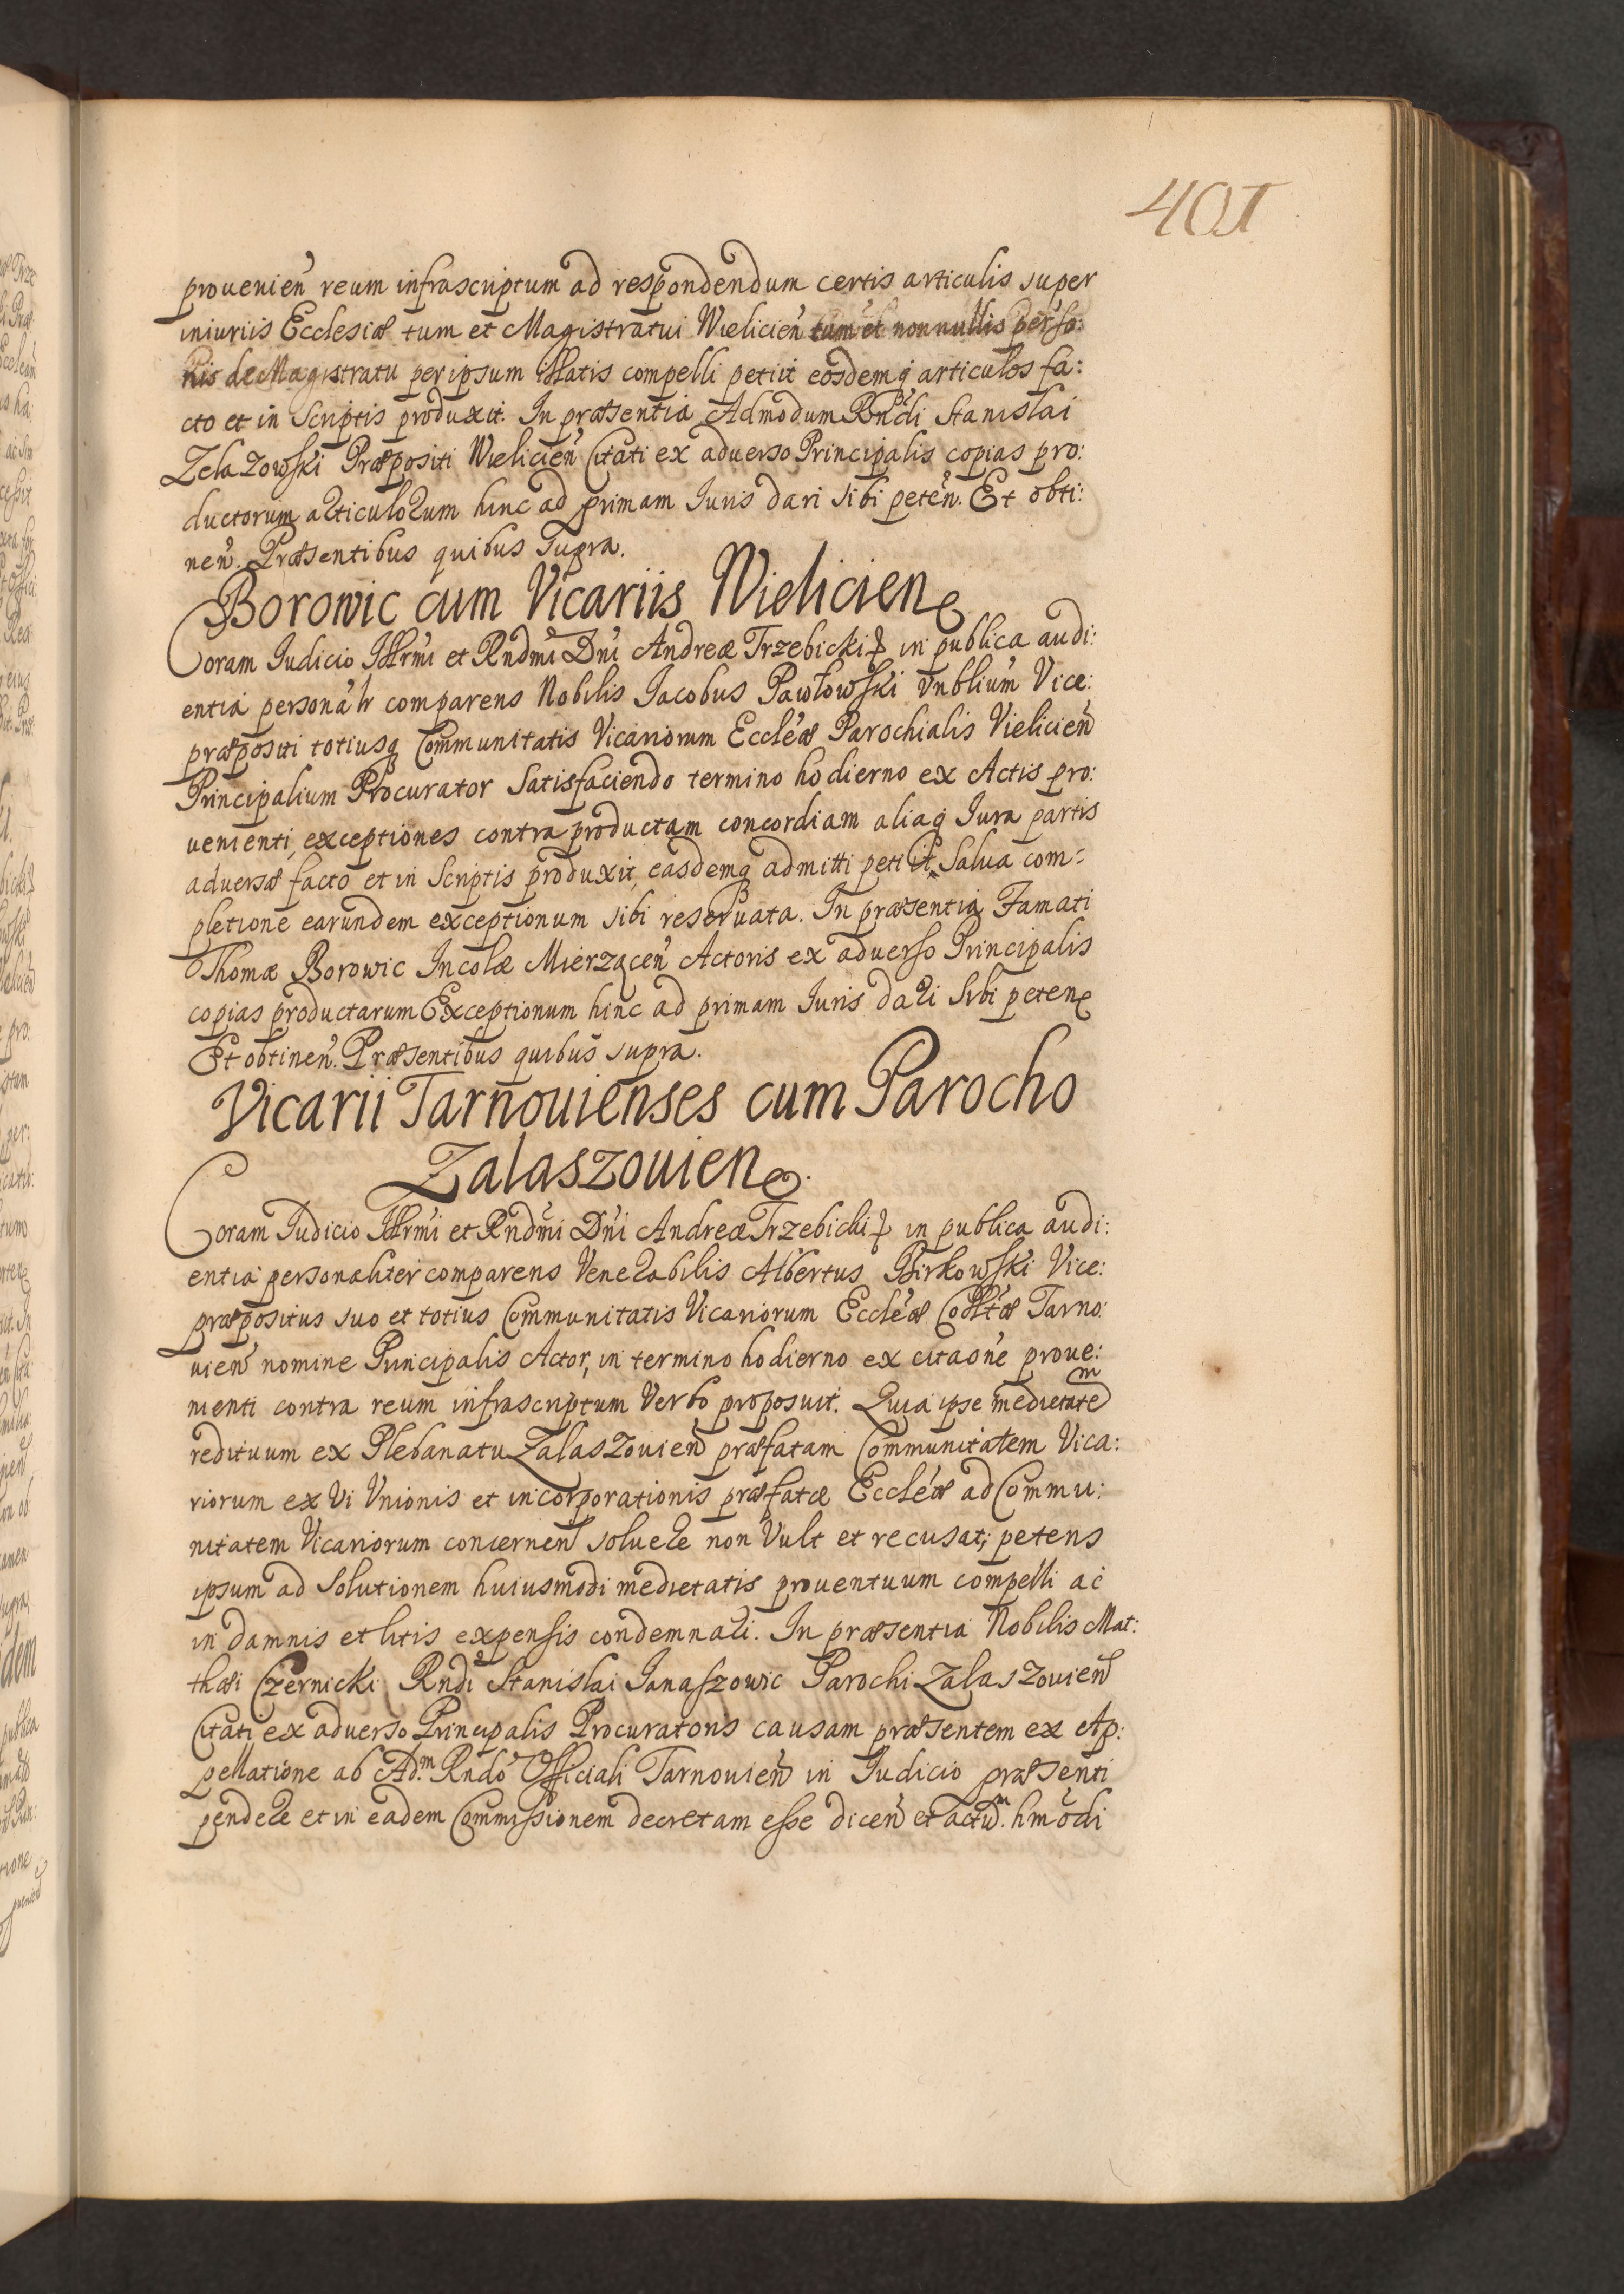 401
prouenien̄ reum infrascriptum ad respondendum certis articulis super
iniuriis Ecclesiæ tum et Magistratui Wielicien̄ tum et nonnullis perso:
nis de Magistratu per ipsum illatis compelli petiit eosdemq̢ articulos fa:
cto et in Scriptis produxit. In præsentia Admodum Rndi Stanislai
Zelazowski Præpositi Wielicien̄ Citati ex aduerso Principalis copias pro:
ductorum articulorum hinc ad primam Iuris dari sibi peten̄. Et obti:
nen̄. Præsentibus quibus supra.
Borowic cum Vicariis Wielicien̄
Coram Iudicio Illrm̄i et Rndm̄i Dn̄i Andreæ Trzebicki in publica audi:
entia personalr comparens Nobilis Jacobus Pawłowski Vnblium̄ Vice:
præpositi totiusq̢ Communitatis Vicariorum Eccleæ Parochialis Vielicien̄
Principalium Procurator Satisfaciendo termino hodierno ex Actis pro:
uenienti, exceptiones contra productam concordiam aliaq̢ Iura partis
aduersæ facto et in Scriptis produxit, easdemq̢ admitti petiit, Salua com-
pletione earundem exceptionum sibi reseruata. In præsentia Famati
Thomæ Borowic Incolæ Mierzącen̄ Actoris ex aduerso Principalis
copias productarum Exceptionum hinc ad primam Iuris dari Sibi peten̄
Et obtinen̄. Præsentibus quibus supra.
Vicarii Tarnouienses cum Parocho
Zalaszouien̄.
Coram Iudicio Illrm̄i et Rndm̄i Dn̄i Andreæ Trzebicki in publica audi:
entia personaliter comparens Venerabilis Albertus Birkowski Vice:
præpositus suo et totius Communitatis Vicariorum Eccleæ Colltæ Tarno:
uien̄ nomine Principalis Actor, in termino hodierno ex citaōne proue:
nienti contra reum infrascriptum Verbo proposuit. Quia ipse medietatem
redituum ex Plebanatu Zalaszouien̄ præfatam Communitatem Vica:
riorum ex Vi Vnionis et incorporationis præfatæ Eccleæ ad Commu:
nitatem Vicariorum concernen̄ soluere non Vult et recusat; petens
ipsum ad Solutionem huiusmodi medietatis prouentuum compelli ac
in damnis et litis expensis condemnari. In præsentia Nobilis Mat:
thæi Czernicki Rndi Stanislai Janaszowic Parochi Zalaszouien̄
Citati ex aduerso Principalis Procuratoris causam præsentem ex Ap:
pellatione ab Ad.m Rndo Officiali Tarnouien̄ in Iudicio præsenti
pendere et in eadem Commissionem decretam esse dicen̄ et actu.m hmōdi